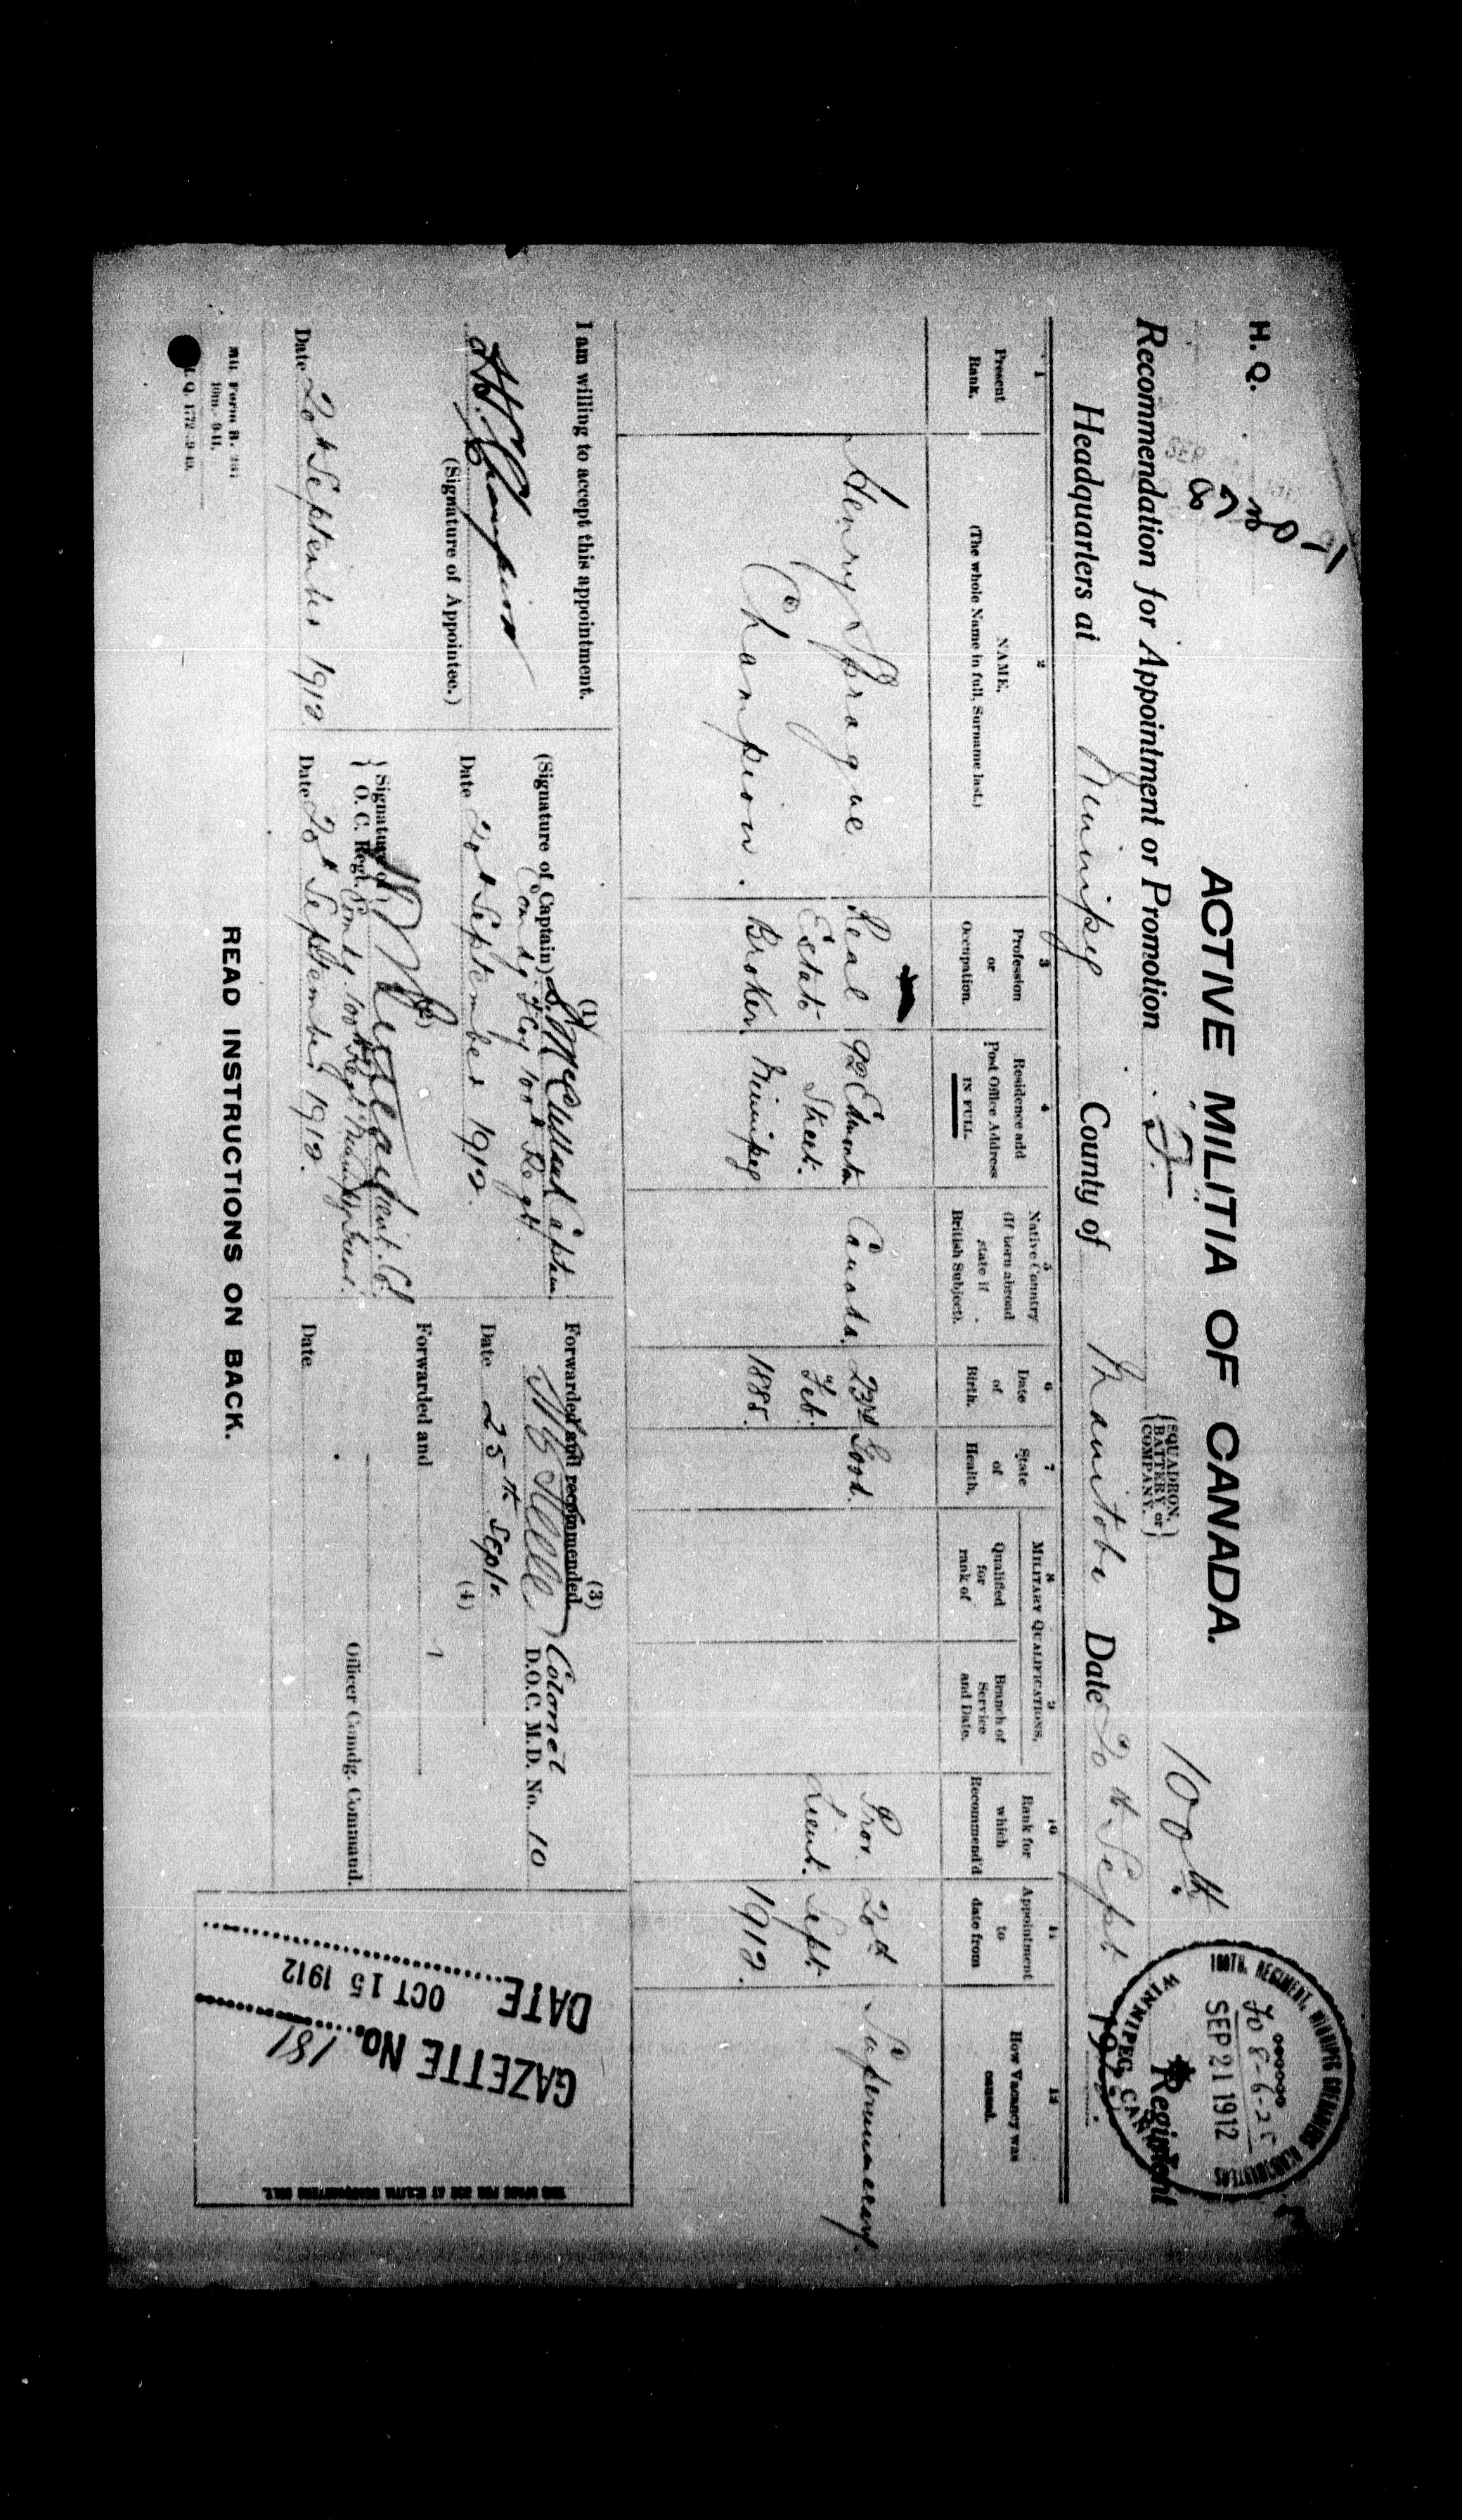 H. Q.
8730-1
ACTIVE MILITIA OF CANADA.
100TH. REGIMENT, WINNIPEG GRENADIERS
SEP 21 1912
WINNIPEG, CAN
Recommendation for Appointment or Promotion F. {SQUADRON, BATTERY or COMPANY.} 100th Regiment
Headquarters at Winnipeg County of Manitoba Date 20th Sept 191
1
Present
Rank.
2
NAME.
(The whole Name in full, Surname last.)
3
Profession
or
Occupation.
4
Residence add
Post Office Address
IN FULL.
5
Native Country
(If born abroad
state if
British Subject).
6
Date
of
Birth.
7
State
of
Health.
MILITARY QUALIFICATIONS.
8
Qualified
for
rank of
9
Branch of
Service
and Date.
10
Rank for
which
Recommend'd
11
Appointment
to
date from
12
How Vacancy was
caused.
Henry Sprague Real 92 Edmonton Canada. 23rd Good. Prov. 20th Supernumerary.
Estate Street. Feb. Lieut. Sept.
Champion. Broker Winnipeg 1885. 1912.
I am willing to accept this appointment.
H.S. Champion
(Signature of Appointee.)
Date 20th September 1912
(1)
(Signature of Captain) Captain
Comdg. F Coy 100th Regt.
Date 20th September 1912.
(2)
{Signature of
O. C. Regt. Lieut. Col
Comdg. 100th Regt
Date 20th September 1912.
(3)
Forwarded and recommended.
Colonel
D.O.C. M.D. No. 10
Date 25th Sept.
(4)
Forwarded and
Officer Comdg. Command.
Date
GAZETTE No. 181
DATE OCT 15 1912
THIS SPACE FOR USE AT MILITIA HEADQUARTERS ONLY.
READ INSTRUCTIONS ON BACK.
Mil. Form B.
10m.-9-11.
H. Q. 1772-39-